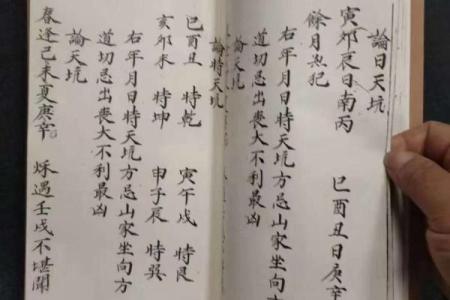 論日天坑
寅卯辰日南丙 巳酉丑日庚辛
餘月無犯
右年月日時天坑方忌山家坐向方
道切忌出喪大不利最凶
論天坑
論時天坑
巳酉丑 時乾 寅午戌 時艮
亥卯未 時坤 申子辰 時巽
右年月日時天坑方忌山家坐向方
道切忌出喪大不利最凶
論天坑
春逢己未夏庚辛 秌遇壬戌不堪聞